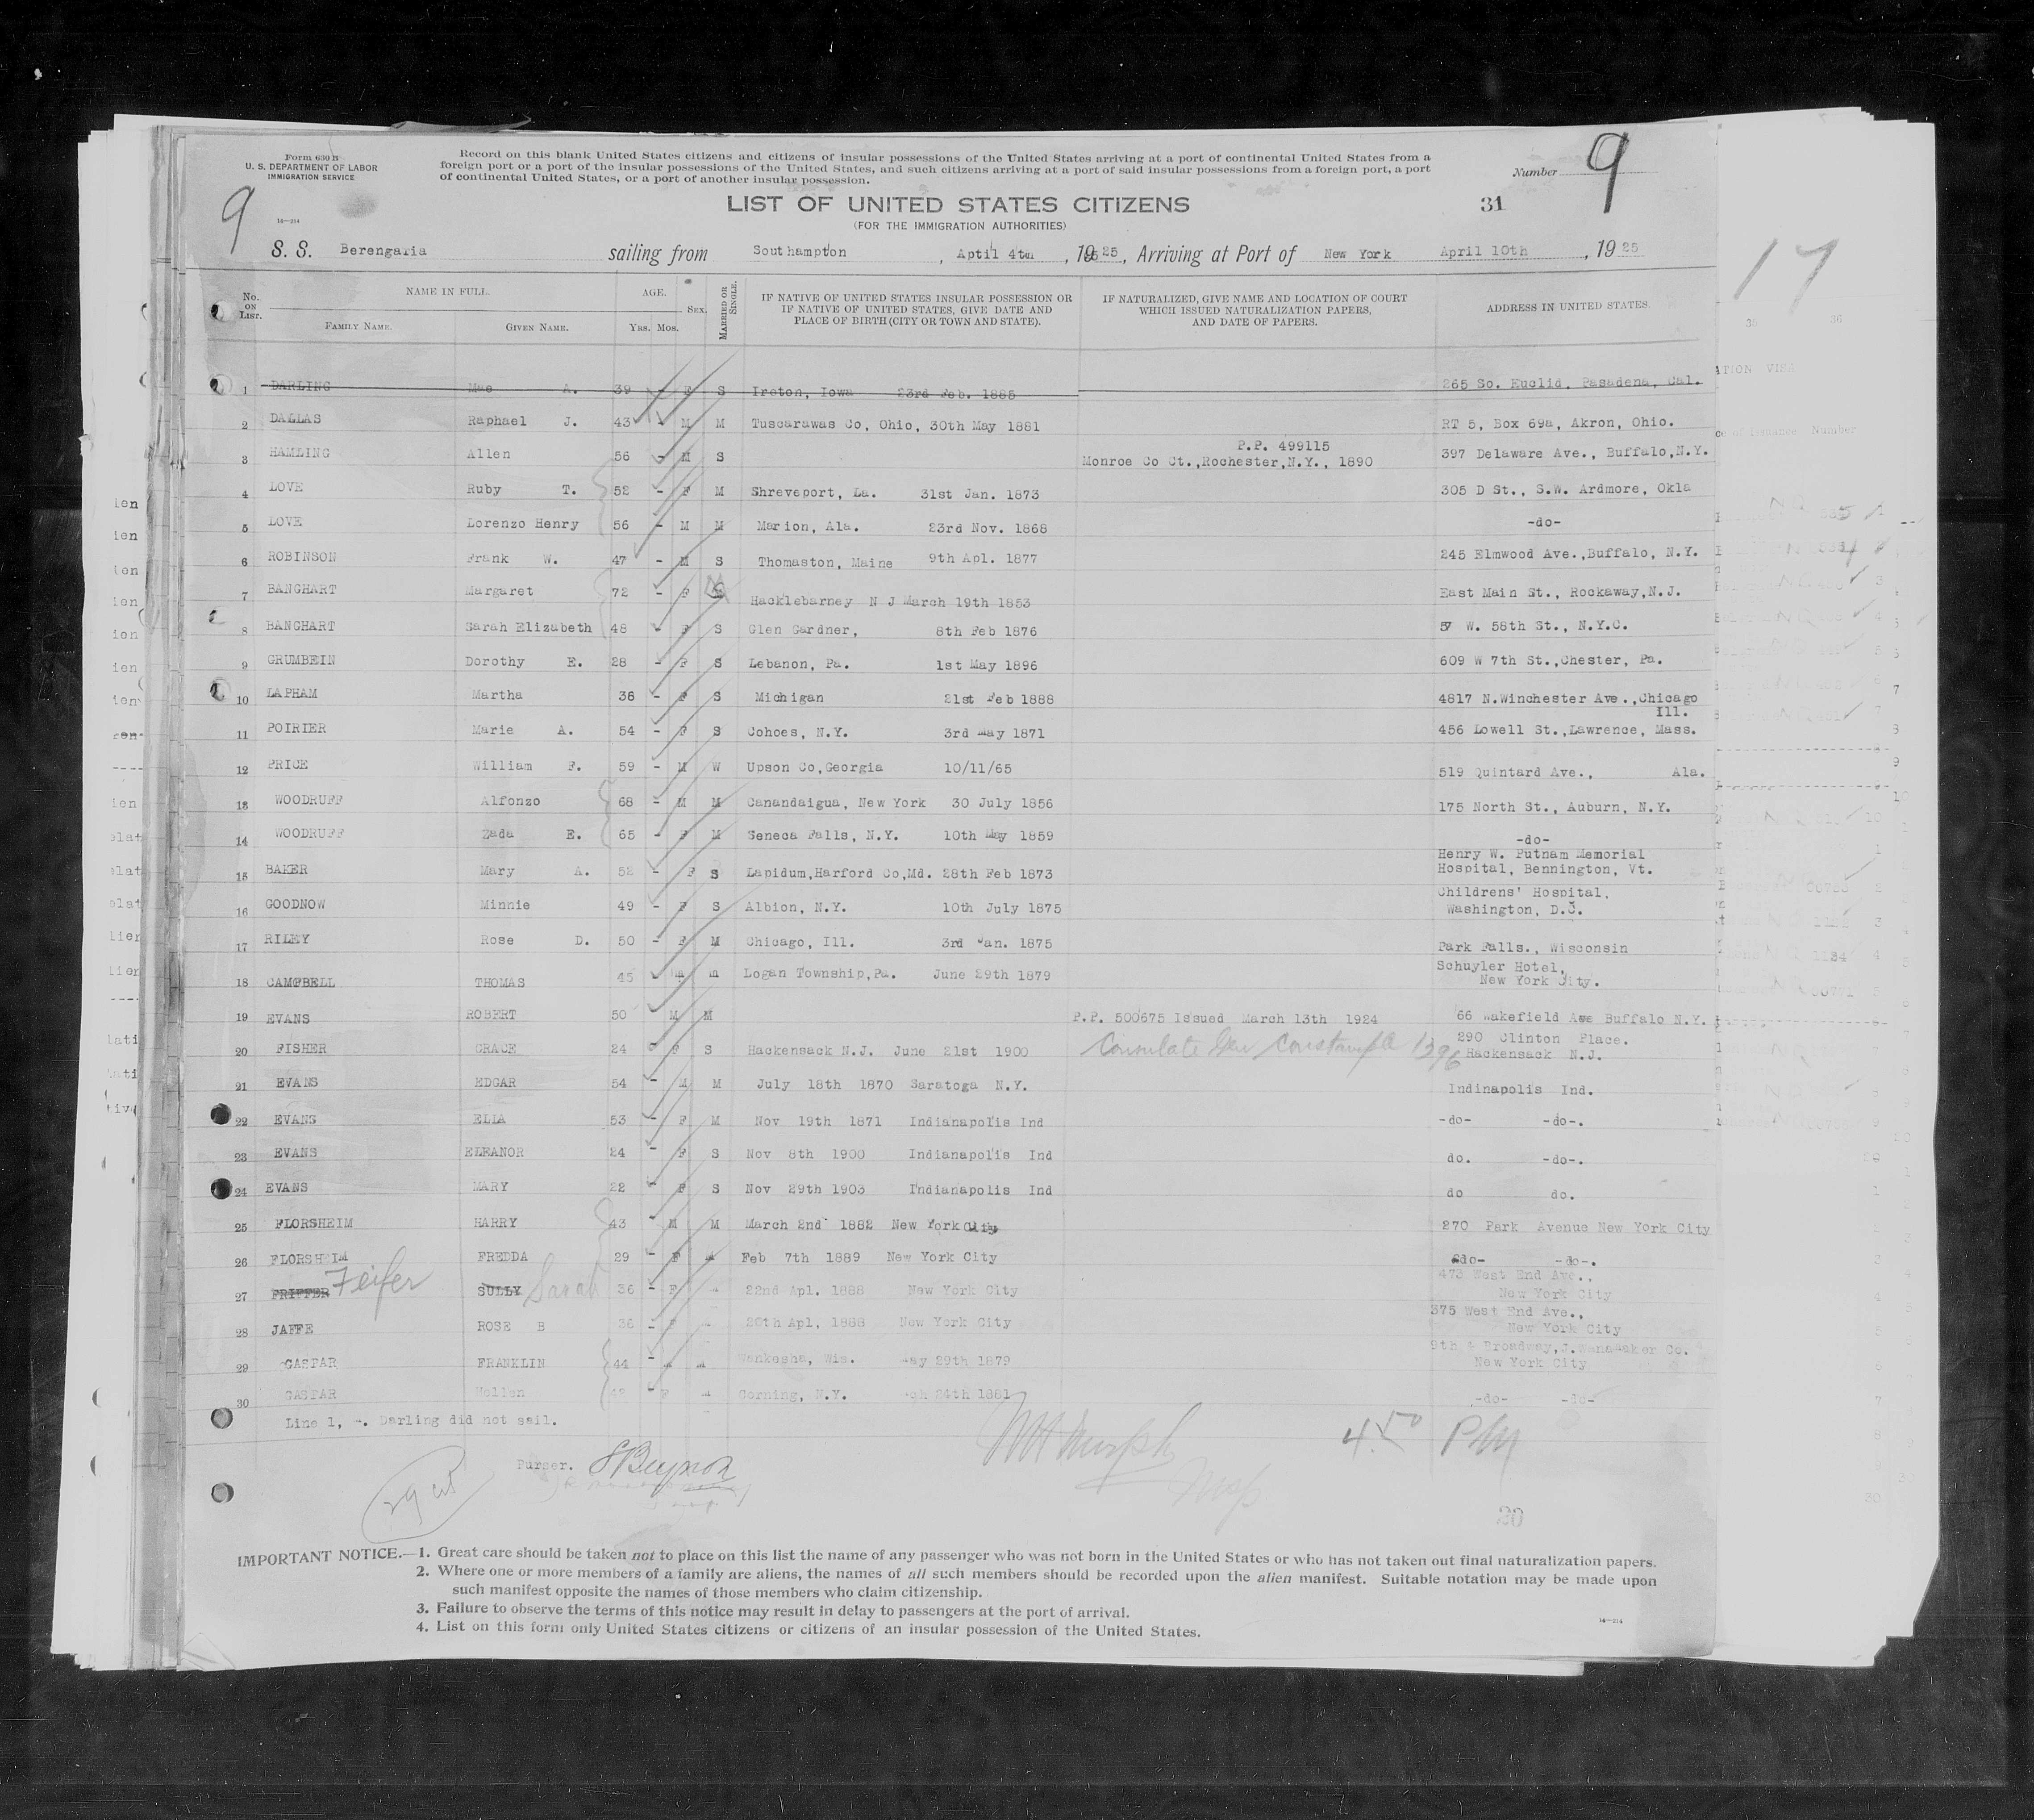 Form 630 B
U. S. DEPARTMENT OF LABOR
IMMIGRATION SERVICE
Record on this blank United States citizens and citizens of insular possessions of the United States arriving at a port of continental United States from a
foreign port or a port of the insular possessions of the United States, and such citizens arriving at a port of said insular possessions from a foreign port, a port
of continental United States, or a port of another insular possession.
Number 9
9
16—214
LIST OF UNITED STATES CITIZENS
31
(FOR THE IMMIGRATION AUTHORITIES)
S. S. Berengaria sailing from Southampton , Aptil 4th , 1925, Arriving at Port of New York April 10th , 1925
17
35 36
No. on List. NAME IN FULL. AGE. Sex. MARRIED OR SINGLE. IF NATIVE OF UNITED STATES INSULAR POSSESSION OR IF NATIVE OF UNITED STATES, GIVE DATE AND PLACE OF BIRTH (CITY OR TOWN AND STATE). IF NATURALIZED, GIVE NAME AND LOCATION OF COURT WHICH ISSUED NATURALIZATION PAPERS, AND DATE OF PAPERS. ADDRESS IN UNITED STATES.
FAMILY NAME. GIVEN NAME. YRS. MOS.
1 DARLING Mae A. 39 - F S Ireton, Iowa 23rd Feb. 1885 265 So. Euclid. Pasadena, Cal.
2 DALLAS Raphael J. 43 - M M Tuscarawas Co, Ohio, 30th May 1881 RT 5, Box 69a, Akron, Ohio.
P.P. 499115
3 HAMLING Allen 56 - M S Monroe Co Ct.,Rochester,N.Y., 1890 397 Delaware Ave., Buffalo,N.Y.
4 LOVE Ruby T. 52 - F M Shreveport, La. 31st Jan. 1873 305 D St., S.W. Ardmore, Okla
5 LOVE Lorenzo Henry 56 - M M Marion, Ala. 23rd Nov. 1868 -do-
6 ROBINSON Frank W. 47 - M S Thomaston, Maine 9th Apl. 1877 245 Elmwood Ave.,Buffalo, N.Y.
7 BANGHART Margaret 72 - F M Hacklebarney N J March 19th 1853 East Main St., Rockaway,N.J.
8 BANGHART Sarah Elizabeth 48 - F S Glen Gardner, 8th Feb 1876 57 W. 58th St., N.Y.C.
9 GRUMBEIN Dorothy E. 28 - F S Lebanon, Pa. 1st May 1896 609 W 7th St.,Chester, Pa.
10 LAPHAM Martha 36 - F S Michigan 21st Feb 1888 4817 N.Winchester Ave.,Chicago
Ill.
11 POIRIER Marie A. 54 - F S Cohoes, N.Y. 3rd May 1871 456 Lowell St.,Lawrence, Mass.
12 PRICE William F. 59 - M W Upson Co,Georgia 10/11/65 519 Quintard Ave., Ala.
13 WOODRUFF Alfonzo 68 - M M Canandaigua, New York 30 July 1856 175 North St., Auburn, N.Y.
14 WOODRUFF Zada E. 65 - F M Seneca Falls, N.Y. 10th May 1859 -do-
Henry W. Putnam Memorial
15 BAKER Mary A. 52 - F S Lapidum,Harford Co,Md. 28th Feb 1873 Hospital, Bennington, Vt.
Childrens' Hospital,
16 GOODNOW Minnie 49 - F S Albion, N.Y. 10th July 1875 Washington, D.C.
17 RILEY Rose D. 50 - F M Chicago, Ill. 3rd Jan. 1875 Park Falls., Wisconsin
Schuyler Hotel,
18 CAMPBELL THOMAS 45 m m Logan Township,Pa. June 29th 1879 New York City.
19 EVANS ROBERT 50 M M P.P. 500675 Issued March 13th 1924 66 Wakefield Ave Buffalo N.Y.
290 Clinton Place.
20 FISHER GRACE 24 F S Hackensack N.J. June 21st 1900 Consulate Gen 1396 Hackensack N.J.
21 EVANS EDGAR 54 - M M July 18th 1870 Saratoga N.Y. Indinapolis Ind.
22 EVANS ELLA 53 - F M Nov 19th 1871 Indianapolis Ind -do- -do-.
23 EVANS ELEANOR 24 - F S Nov 8th 1900 Indianapolis Ind do. -do-.
24 EVANS MARY 22 - F S Nov 29th 1903 Indianapolis Ind do do.
25 FLORSHEIM HARRY 43 - M M March 2nd 1882 New York City 270 Park Avenue New York City
26 FLORSHEIM FREDDA 29 - F Feb 7th 1889 New York City -do- -do-.
473 West End Ave.,
27 Feifer SULLY Sarah 36 - F 22nd Apl. 1888 New York City New York City
375 West End Ave.,
28 JAFFE ROSE B 36 - F 20th Apl, 1888 New York City New York City
9th & Broadway,J.Wanamaker Co.
29 GASPAR FRANKLIN 44 - Wankesha, Wis. May 29th 1879 New York City
30 GASPAR Hellen 42 - F Corning, N.Y. 24th 1881 -do- -do-
Line 1, Darling did not sail.
4.50 PM
Purser.
29
20
IMPORTANT NOTICE.—1. Great care should be taken not to place on this list the name of any passenger who was not born in the United States or who has not taken out final naturalization papers.
2. Where one or more members of a family are aliens, the names of all such members should be recorded upon the alien manifest. Suitable notation may be made upon
such manifest opposite the names of those members who claim citizenship.
3. Failure to observe the terms of this notice may result in delay to passengers at the port of arrival.
4. List on this form only United States citizens or citizens of an insular possession of the United States.
16—214